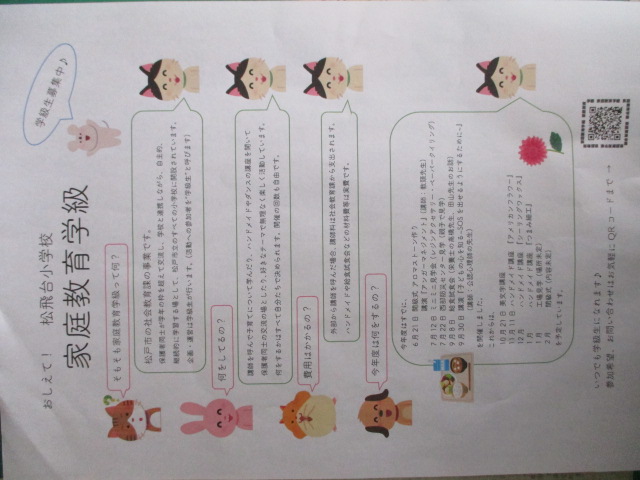 おしえて！　松飛台小学校
家庭教育学級
学級生募集中♪
そもそも家庭教育学級って何？
松戸市の社会教育課の事業です。
保護者同士が学年の枠を超えて交流し、学校と連携しながら、自主的、
継続的に学習する場として、松戸市立のすべての小学校に開設されています。
企画・運営は学級生が行います。（活動への参加者を"学級生"と呼びます）
何をしてるの？
講師を呼んで子育てについて学んだり、ハンドメイドやダンスの講座を開いて
保護者同士の交流の場としたり、好きなテーマで無理なく楽しく活動しています。
何をするかはすべて自分たちで決められます。開催の回数も自由です。
費用はかかるの？
外部から講師を呼んだ場合、講師料は社会教育課から支出されます。
ハンドメイドや給食試食会などの材料費等は実費です。
今年度は何をするの？
今年度はすでに、
6月21日 開級式 アロマストーン作り
講演「アンガーマネジメント」（講師：教頭先生）
7月12日 ミニミニ見学会（レジンアクセサリー・ペーパークイリング）
7月22日 西部防災センター見学（親子で見学）
9月9日 給食試食会（栄養士の 先生、田山先生のお話）
9月30日 講演「子どもの心を知る～SOSを出せるようにするために～」
（講師：公認心理師の先生）
を開催しました。
これからは、
10月21日 東京京講座
11月11日 ハンドメイド講座 『アメリカンフラワー』
12月 ハンドメイド講座 『シーリングワックス』
1月 ハンドメイド講座 『つまみ細工』
1月 工場見学（場所未定）
2月 閉級式（内容未定）
を予定しています。
いつでも学級生になれます♪
参加希望、お問い合わせはお気軽に QRコードまで →